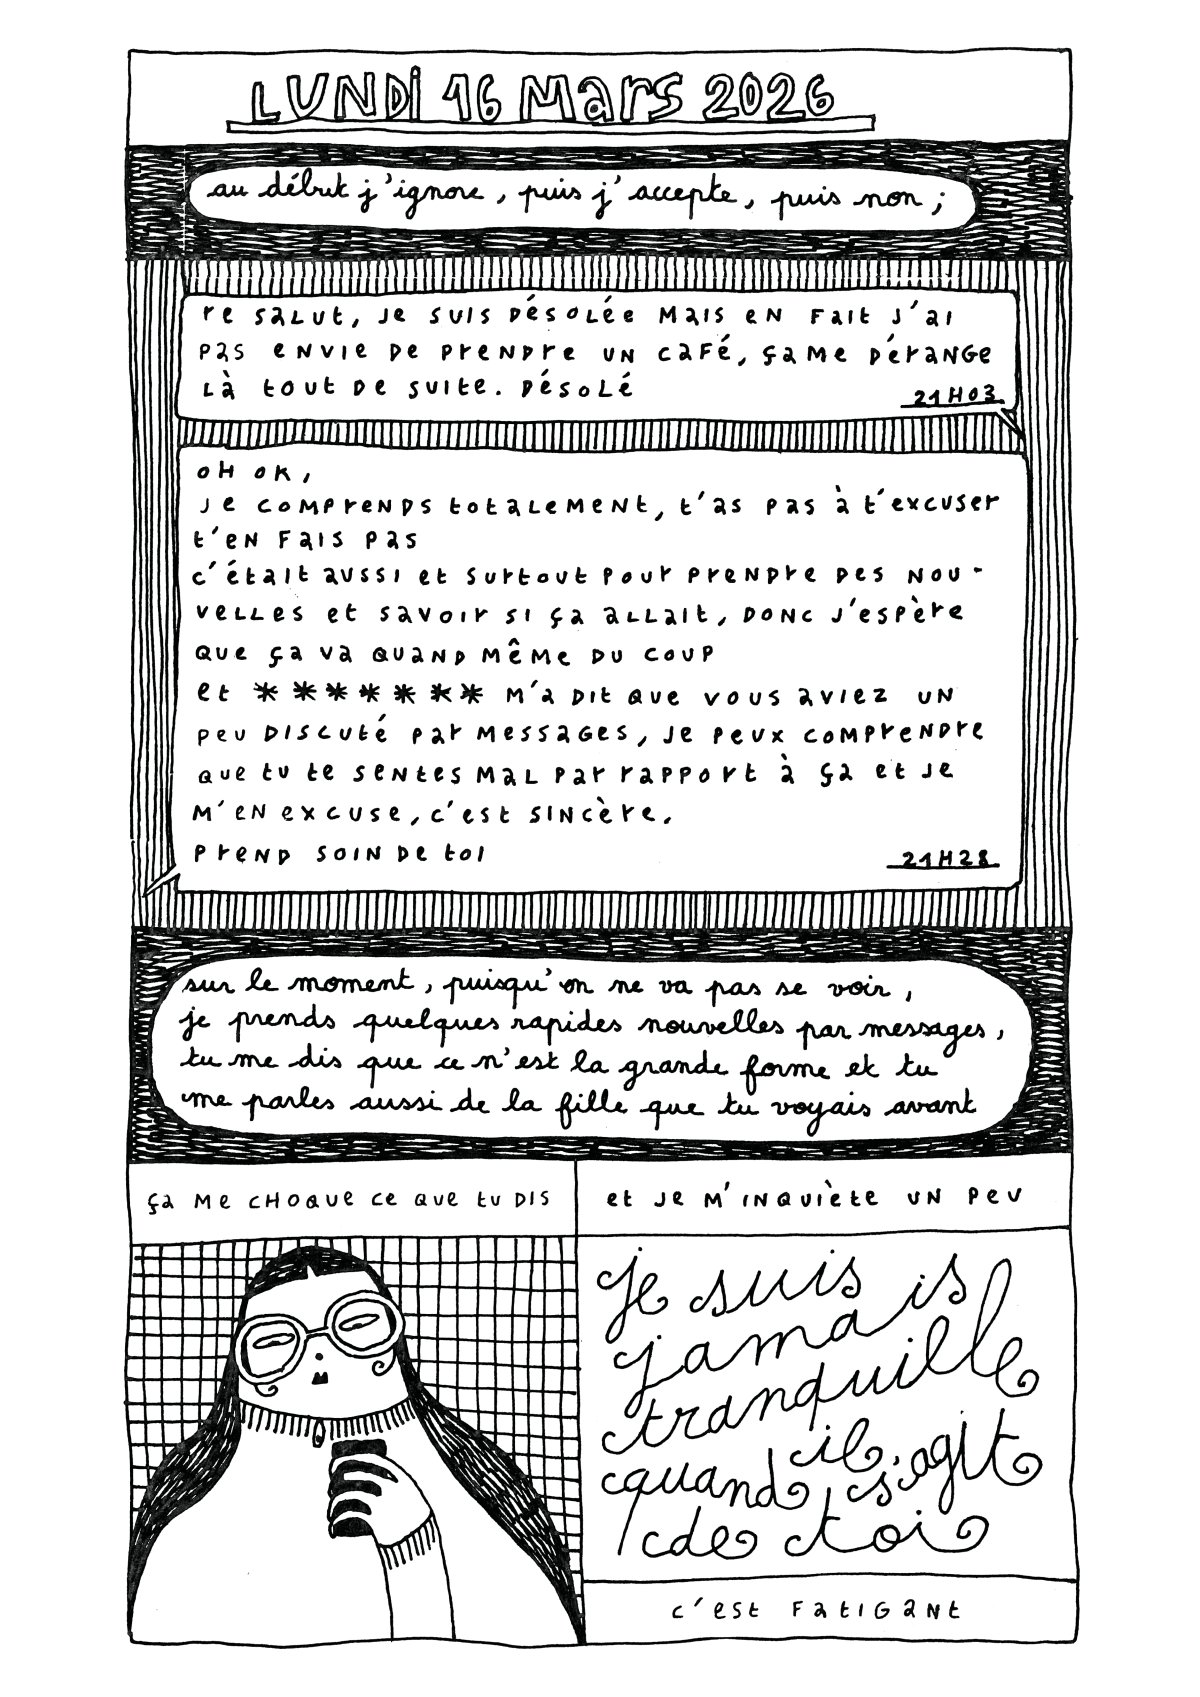 LUNDI 16 Mars 2026
au début j'ignore, puis j'accepte, puis non ;
re salut, je suis désolée mais en fait j'ai
pas envie de prendre un café, ça me dérange
là tout de suite. désolé
21H03
oh ok,
je comprends totalement, t'as pas à t'excuser
t'en fais pas
c'était aussi et surtout pour prendre des nou-
velles et savoir si ça allait, donc j'espère
que ça va quand même du coup
et ******* m'a dit que vous aviez un
peu discuté par messages, je peux comprendre
que tu te sentes mal par rapport à ça et je
m'en excuse, c'est sincère.
prend soin de toi
21H28
sur le moment, puisqu'on ne va pas se voir,
je prends quelques rapides nouvelles par messages,
tu me dis que ce n'est la grande forme et tu
me parles aussi de la fille que tu voyais avant
ça me choque ce que tu dis
et je m'inquiète un peu
je suis
jamais
tranquille
quand il s'agit
de toi
c'est fatigant